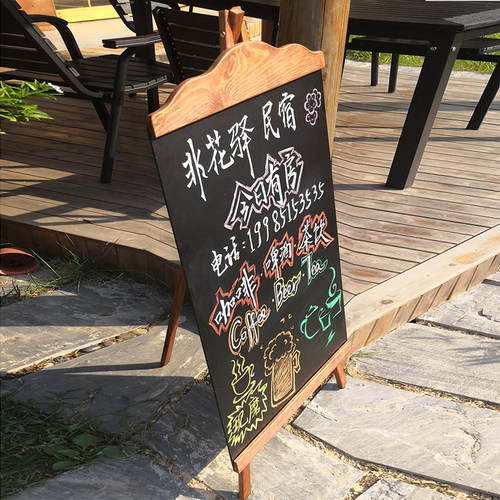 非花驿 民宿
今日有房
电话:19985153535
咖啡·啤酒 茶饮
Coffee Beer·Tea